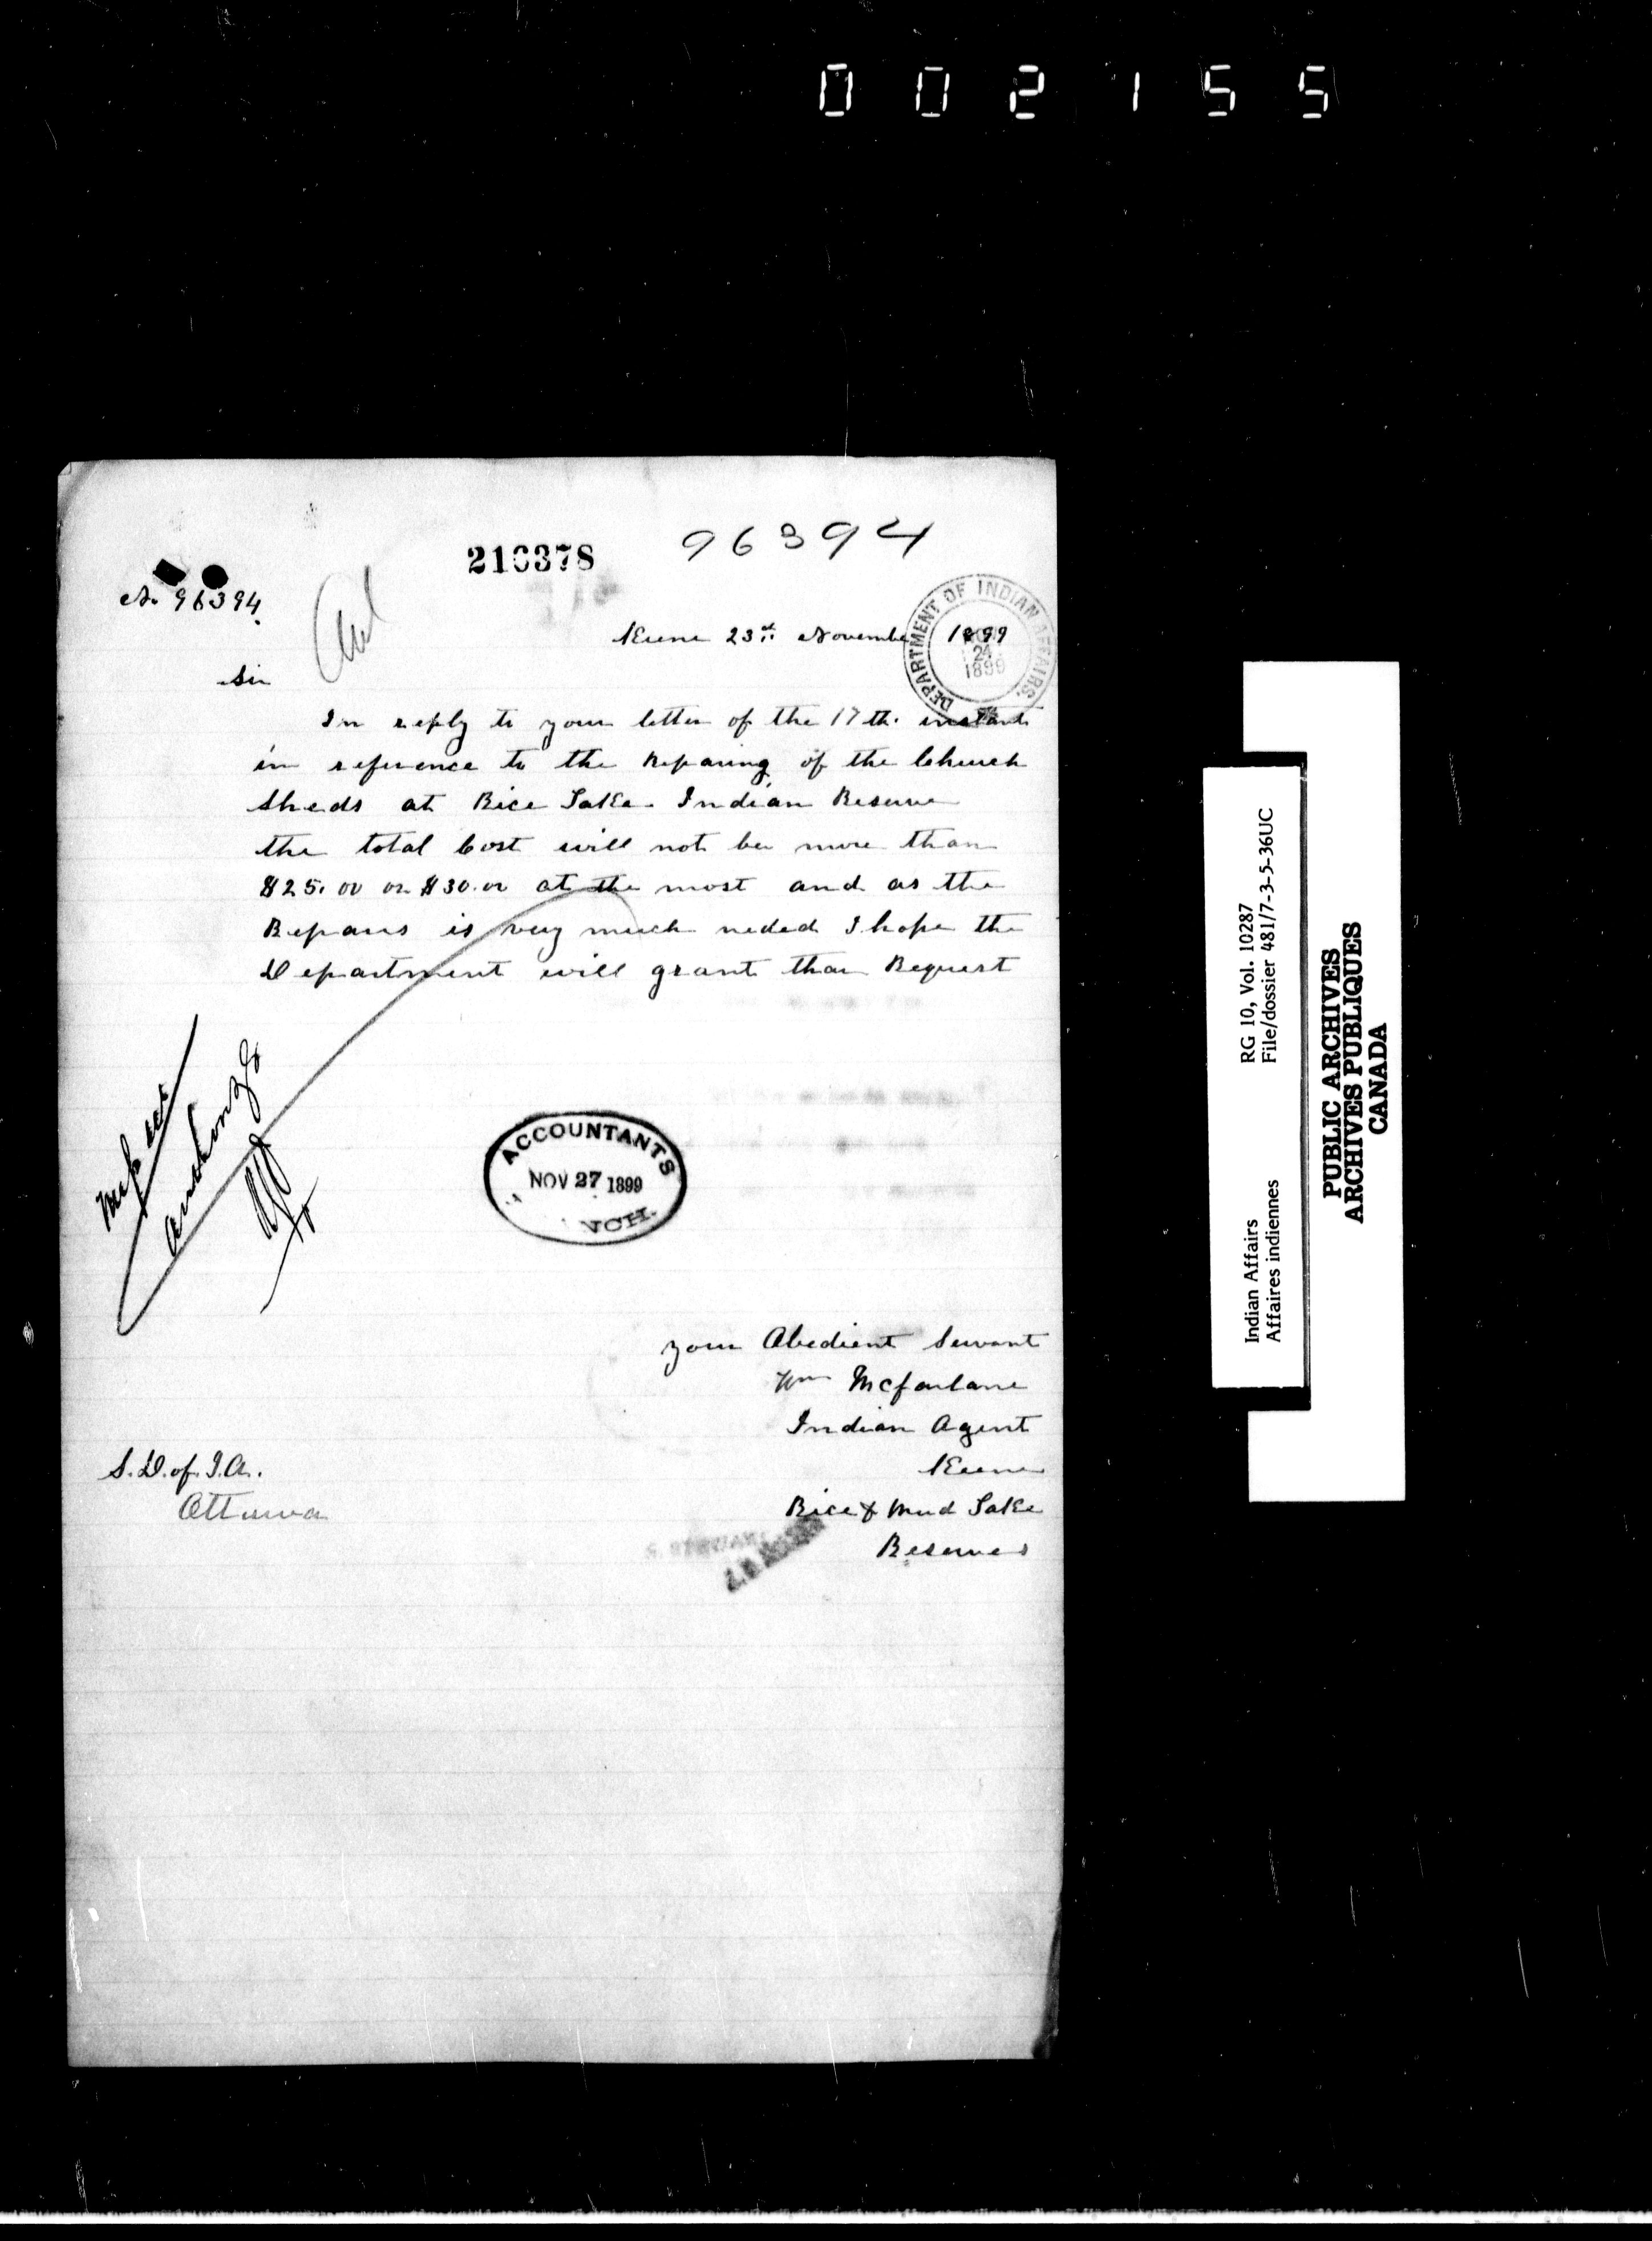 002155
210378
96394
No 96394
DEPARTMENT OF INDIAN AFFAIRS.
24
1899
Keene 23rd November 1899
Sir
In reply to your letter of the 17th. instant
in reference to the Reparing of the Church
Sheds at Rice Lake Indian Reserve
the total Cost will not be more than
$25.00 or $30.00 at the most and as the
Repairs is very much neded I hope the
Department will grant thar Request
authorize
ACCOUNTANTS
NOV 27 1899
NCH.
your Obedient Servant
Wm McFarlane
Indian Agent
Keene
Rice & Mud Lake
Reserves
S.D. of I.A.
Ottawa
Indian Affairs RG 10, Vol. 10287
Affaires indiennes File/dossier 481/7-3-5-36UC
PUBLIC ARCHIVES
ARCHIVES PUBLIQUES
CANADA